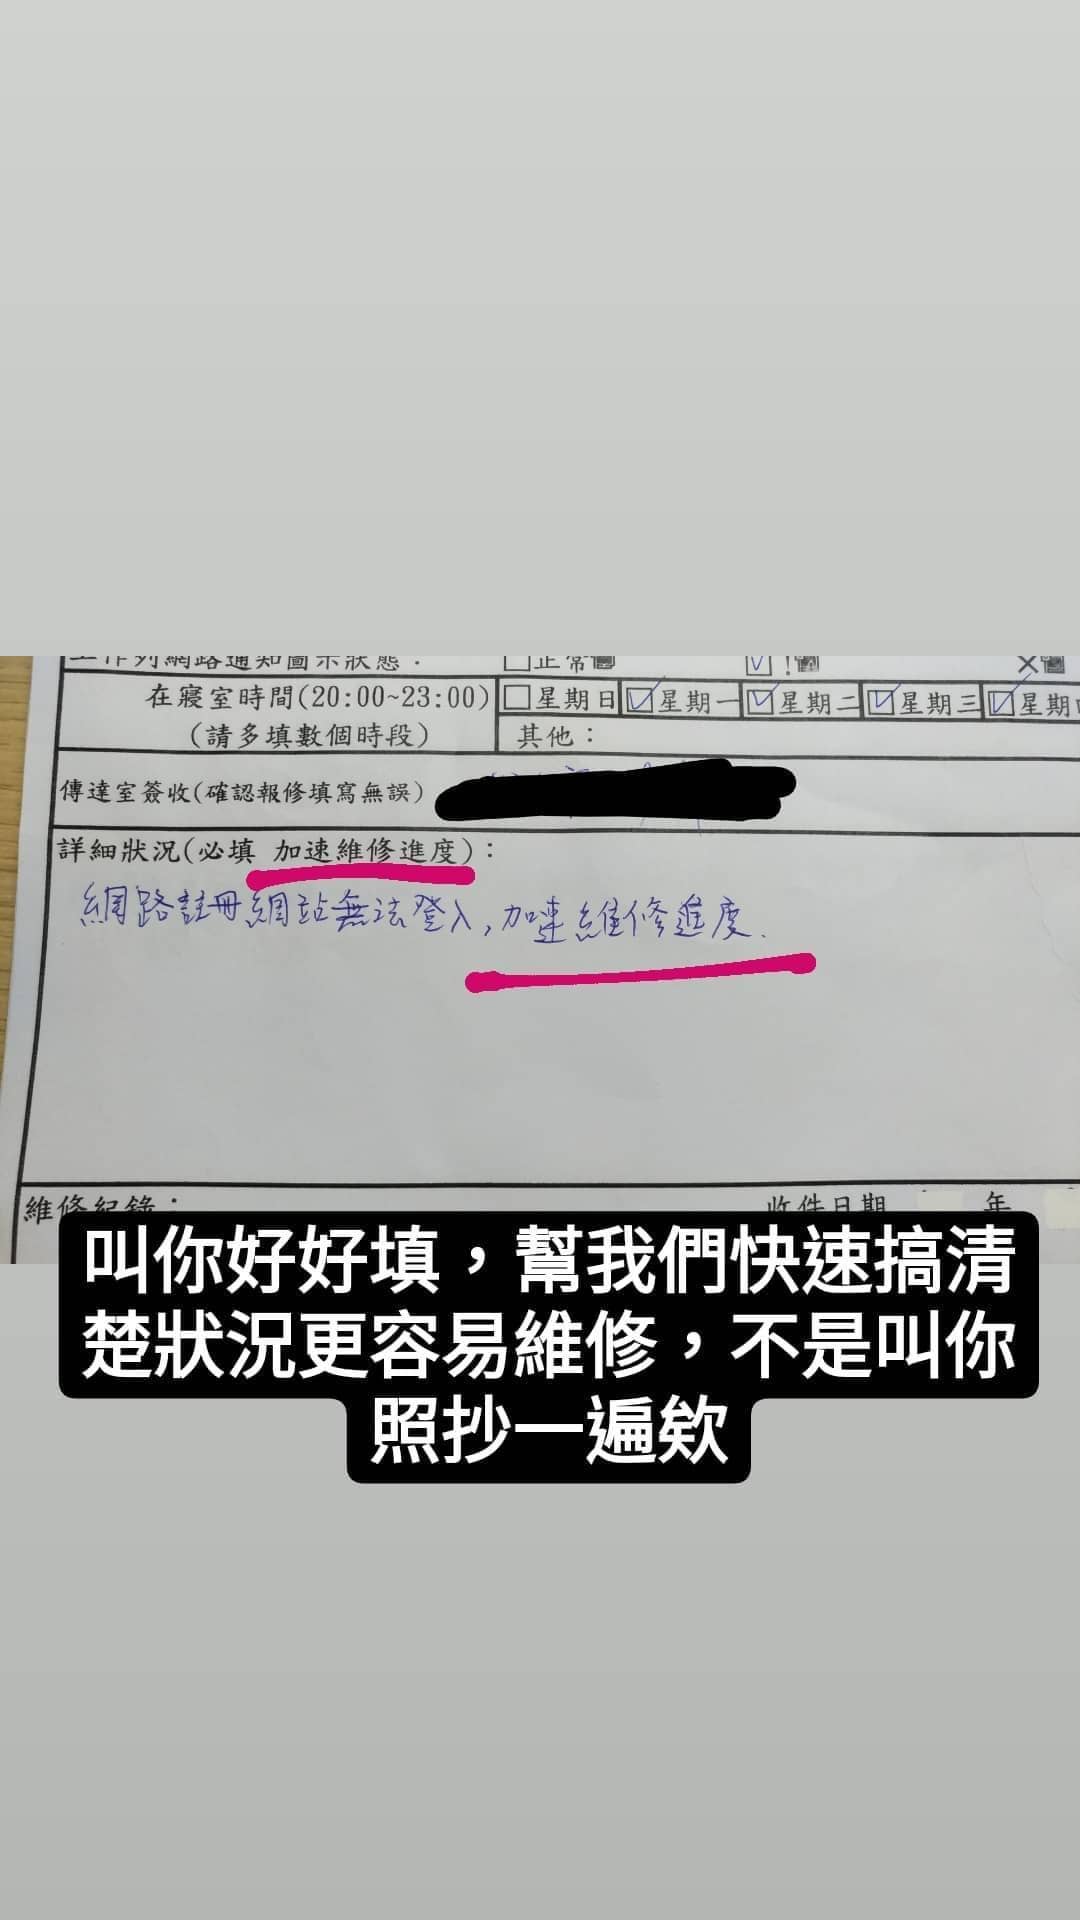 工作列網路通知圖示狀態：	□正常	☑!	×
在寢室時間(20:00~23:00)	□星期日	☑星期一	☑星期二	☑星期三	☑星期
(請多填數個時段)	其他：
傳達室簽收(確認報修填寫無誤)
詳細狀況(必填 加速維修進度)：
網路註冊網站無法登入,加速維修進度.
維修紀錄：	收件日期	年
叫你好好填，幫我們快速搞清
楚狀況更容易維修，不是叫你
照抄一遍欸